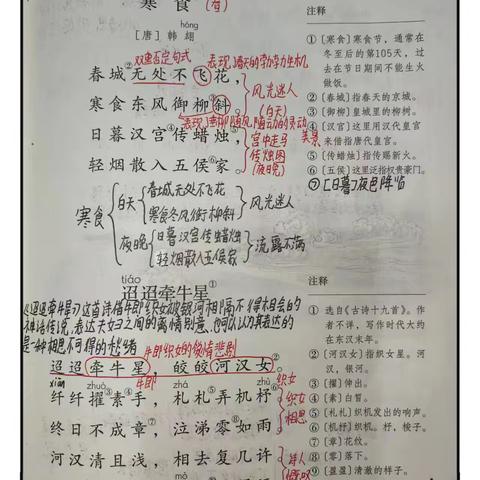 寒 食
hóng
[唐] 韩 翃
双重否定句式
表现了春天的勃勃生机
春城无处不飞花,
寒食东风御柳斜。
风光迷人
(白天)
日暮汉宫传蜡烛,
轻烟散入五侯家。
宫中走马
传烛图
(夜晚)
寒食
白天
春城无处不飞花
寒食东风御柳斜
风光迷人
夜晚
日暮汉宫传蜡烛
轻烟散入五侯家
流露不满
注释
①[寒食]寒食节,通常在
冬至后的第105天,过
去在节日期间不能生火
做饭。
②[春城]指春天的京城。
③[御柳]皇城里的柳树。
④[汉宫]这里用汉代皇宫
来借指唐代皇宫。
⑤[传蜡烛]指传赐新火。
⑥[五侯]这里泛指权贵豪门。
⑦[日暮]夜色降临
tiáo
迢迢牵牛星①
《迢迢牵牛星》这首诗借牛郎织女被银河相隔不得相会的
神话传说,表达夫妇之间的离情别意,也可以认为其表达的
是一种相思不可得的愁绪
牛郎织女的爱情悲剧
迢迢牵牛星,皎皎河汉女②。
xiān
zhuó
牛郎
zhù
织女
纤纤擢③素④手,札札⑤弄机杼⑥。
织女
相思
终日不成章⑦,泣涕零⑧如雨。
河汉清且浅,相去复几许
诗人
mò
注释
① 选自《古诗十九首》。作
者不详,写作时代大约
在东汉末年。
②[河汉女]指织女星。河
汉,银河。
③[擢]伸出。
④[素]白皙。
⑤[札札]织机发出的响声。
⑥[机杼]织机。杼,梭子。
⑦[章]花纹。
⑧[零]落下。
⑨[盈盈]清澈的样子。